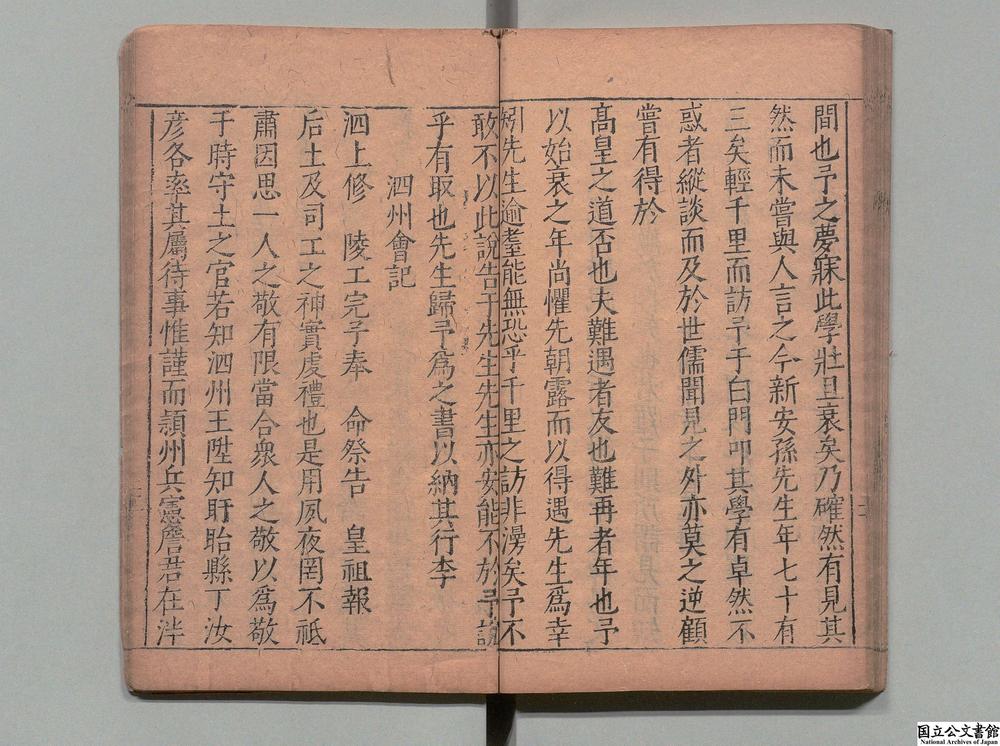 間也予之夢寐此學壯且衰矣乃確然有見其
然而未嘗與人言之今新安孫先生年七十有
三矣輕千里而訪予于白門叩其學有卓然不
惑者縱談而及於世儒聞見之外亦莫之逆顧
嘗有得於
髙皇之道否也夫難遇者友也難再者年也予
以始衰之年尚懼先朝露而以得遇先生為幸
矧先生逾耋能無恐乎千里之訪非漫矣予不
敢不以此說告于先生先生亦安能不於予說
乎有取也先生歸予為之書以納其行李
泗州會記
泗上修 陵工完予奉 命祭告 皇祖報
后土及司工之神實虔禮也是用夙夜罔不祗
肅因思一人之敬有限當合衆人之敬以爲敬
于時守土之官若知泗州王陞知盱眙縣丁汝
彦各率其屬待事惟謹而頴州兵憲詹君在泮
国立公文書館
National Archives of Japan